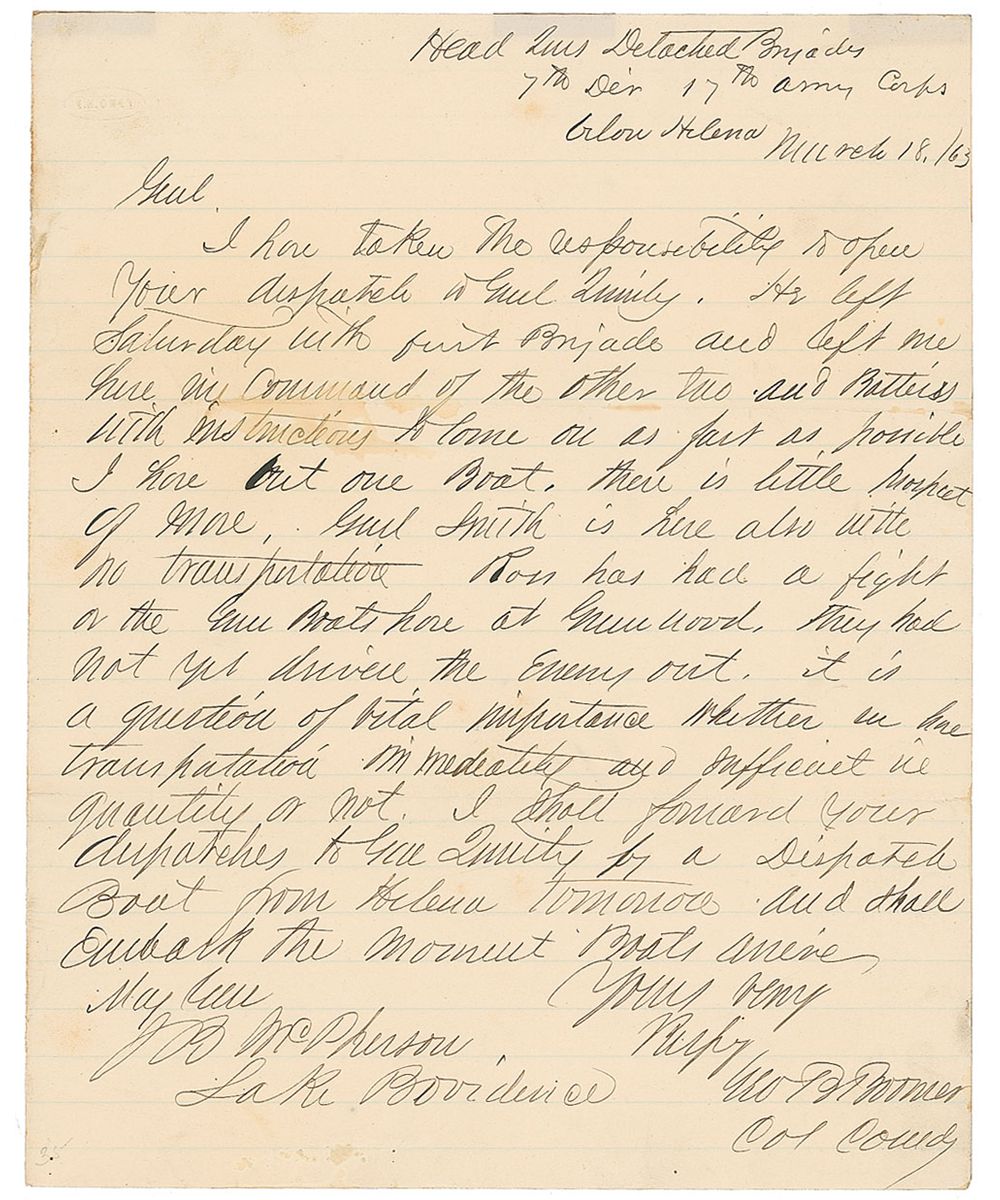 Head Qurs Detached Brigades
7th Div 17th Army Corps
below Helena March 18, /63
Genl.
I have taken the responsibility to open
Your dispatch to Genl Quinby. He left
Saturday with first Brigade and left me
here in Command of the other two and Batteries
with instructions to Come on as fast as possible
I have but one Boat. there is little prospect
of More. Genl Smith is here also with
no transportation Ross has had a fight
or the Gun Boats have at Greenwood. They had
not yet driven the Enemy out. it is
a question of vital importance whether we have
transportation immediately and sufficient in
quantity or not. I shall forward Your
dispatches to Gen Quinby by a Dispatch
Boat from Helena tomorrow and shall
Embark the Moment Boats arrive
Maj Gen Yours very
J B McPherson Respy
Lake Providence Geo B Boomer
Col Comdg
35